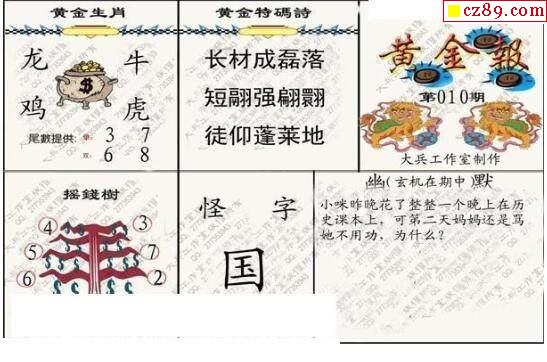 cz89.com
黄金生肖
龙 牛
鸡 虎
尾數提供: 單: 3 7
双: 6 8
黄金特碼詩
长材成磊落
短翮强翩翾
徒仰蓬莱地
黄金報
第010期
大兵工作室制作
摇錢樹
4 3
6 7
5 2
怪字
国
幽(玄机在期中)默
小咪昨晚花了整整一个晚上在历
史课本上，可第二天妈妈还是骂
她不用功、为什么？